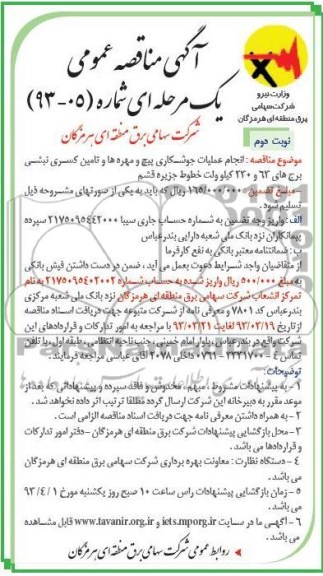 آگهی مناقصه عمومی
یک مرحله ای شماره (۰۵-۹۳)
وزارت نیرو
شرکت سهامی
برق منطقه ای هرمزگان
شرکت سهامی برق منطقه ای هرمزگان
نوبت دوم
موضوع مناقصه : انجام عملیات جوشکاری پیچ و مهره ها و تامین کسری نبشی
برج های ۶۳ و ۲۳۰ کیلو ولت خطوط جزیره قشم
مبلغ تضمین : ۱۶۵/۰۰۰/۰۰۰ ریال که باید به یکی از صورتهای مشروحه ذیل
تسلیم شود.
الف : واریز وجه تضمین به شماره حساب جاری سیبا ۲۱۷۵۰۹۵۴۴۲۰۰۰ سپرده
پیمانکاران نزد بانک ملی شعبه دارایی بندرعباس
ب : ضمانتنامه معتبر بانکی به نفع کارفرما
از متقاضیان واجد شرایط دعوت بعمل می آید ، ضمن در دست داشتن فیش بانکی
به مبلغ ۵۰۰/۰۰۰ ریال واریز شده به حساب شماره ۲۱۷۵۰۹۵۴۰۲۰۰۲ به نام
تمرکز انشعاب شرکت سهامی برق منطقه ای هرمزگان نزد بانک ملی شعبه مرکزی
بندرعباس کد ۷۸۰۱ و معرفی نامه از شرکت متبوعه جهت دریافت اسناد مناقصه
از تاریخ ۹۳/۰۳/۱۹ لغایت ۹۳/۰۳/۲۱ با مراجعه به امور تدارکات و قراردادهای این
شرکت واقع در بندرعباس، بلوار امام خمینی ، جنب ناحیه انتظامی ، طبقه اول، یا تلفن
تماس ۴ - ۳۳۳۱۷۰۰ - ۰۷۶۱ داخلی ۲۰۷۸ آقای عباسی مراجعه فرمایند .
توضیحات :
۱ - به پیشنهادات مشروط ، مبهم ، مخدوش و فاقد سپرده و پیشنهاداتی که بعد از
موعد مقرر به دبیرخانه این شرکت ارسال گردد مطلقا ترتیب اثر داده نخواهد شد.
۲ - به همراه داشتن معرفی نامه جهت دریافت اسناد مناقصه الزامی است .
۳ - محل بازگشایی پیشنهادات شرکت برق منطقه ای هرمزگان - دفتر امور تدارکات
و قراردادها می باشد.
۴ - دستگاه نظارت : معاونت بهره برداری شرکت سهامی برق منطقه ای هرمزگان
می باشد.
۵ - زمان بازگشایی پیشنهادات راس ساعت ۱۰ صبح روز یکشنبه مورخ ۹۳/۴/۱
می باشد.
۶ - آگهی ما در سایت iets.mporg.ir و www.tavanir.org.ir قابل مشاهده
می باشد .
روابط عمومی شرکت سهامی برق منطقه ای هرمزگان